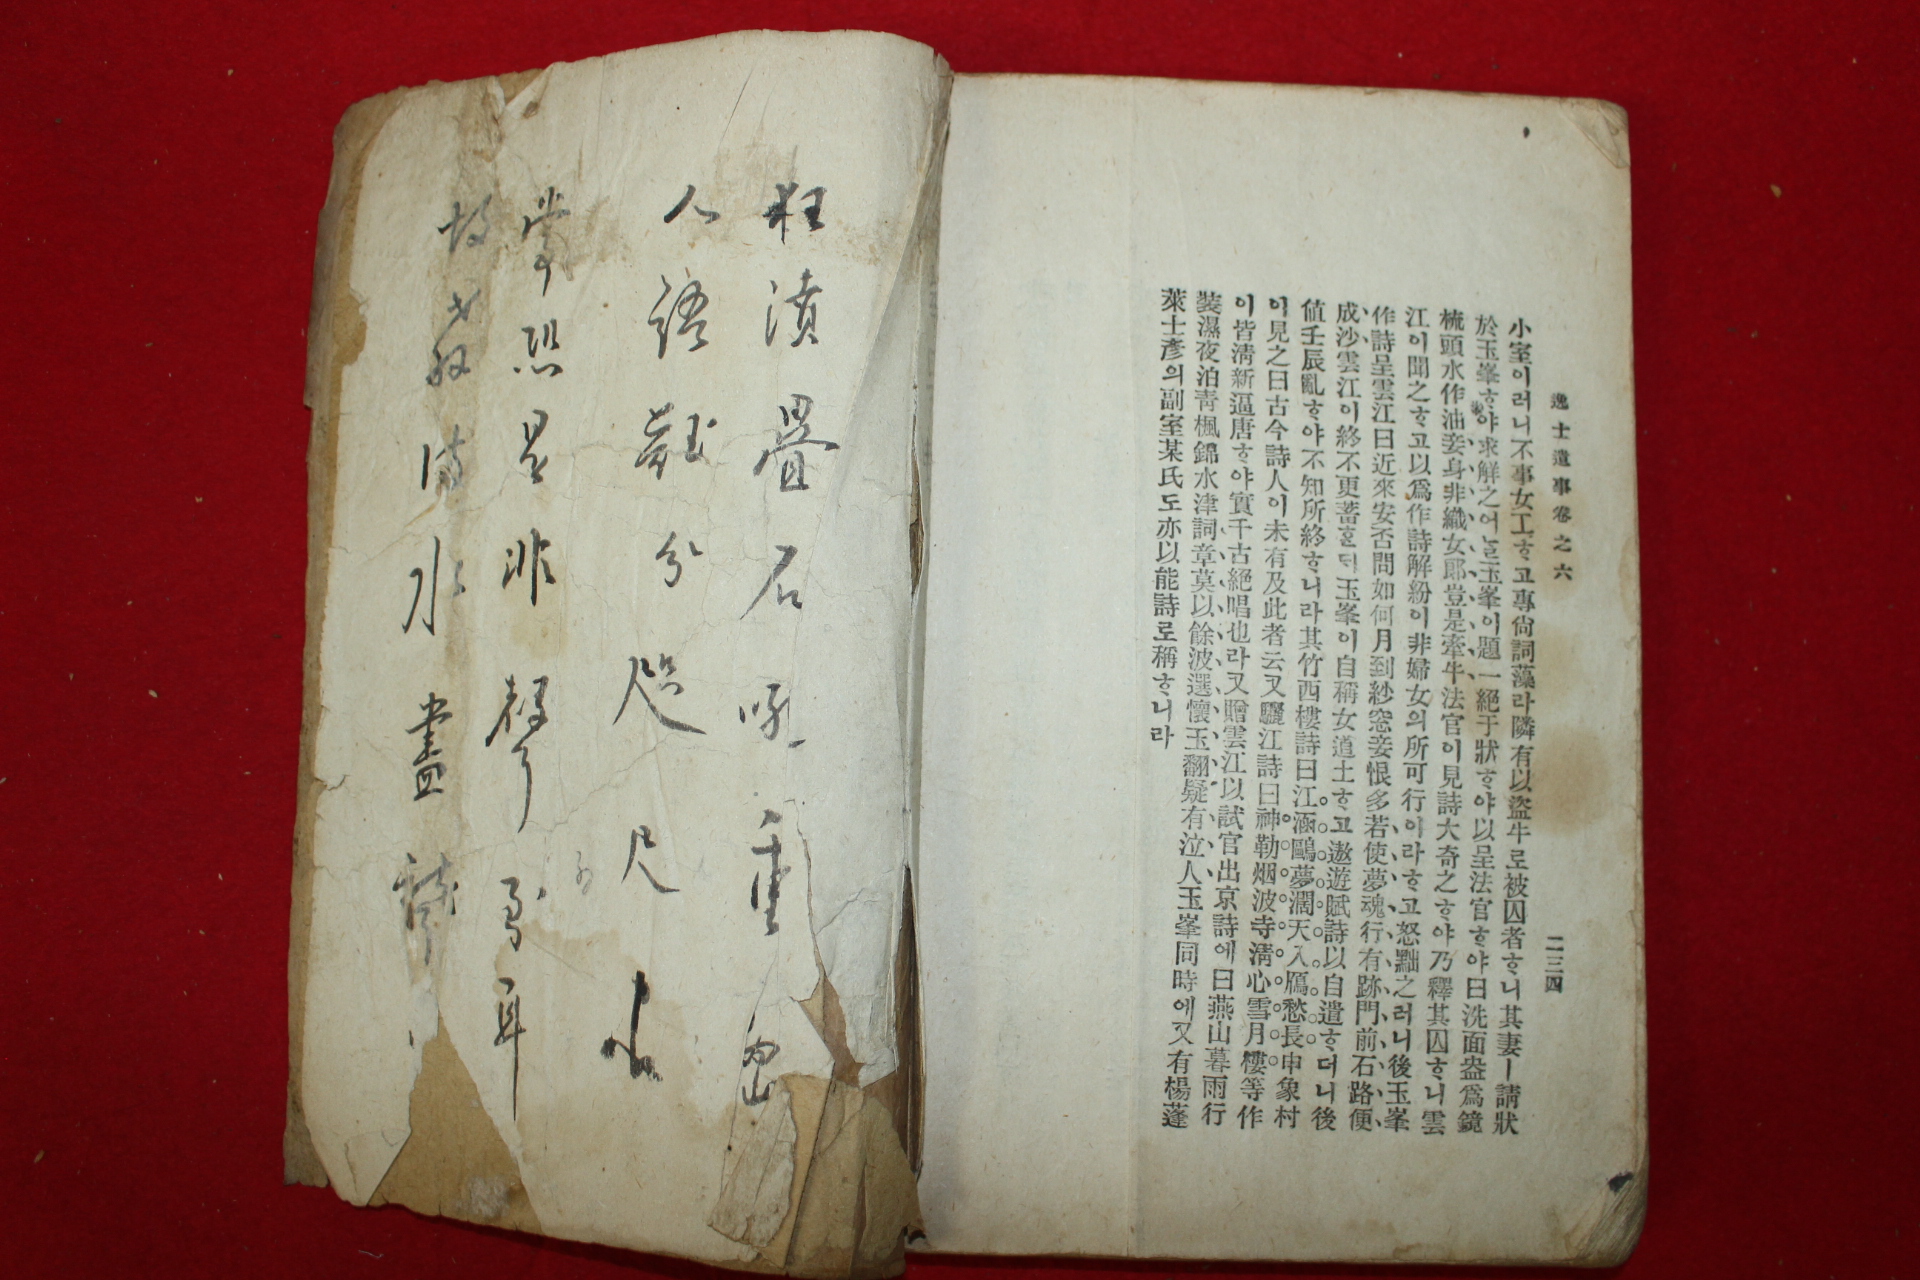 逸士遺事卷之六 二三四
小室이러니不事女工ᄒᆞ고專尙詞藻라隣有以盜牛로被囚者ᄒᆞ니其妻ㅣ請狀
於玉峯ᄒᆞ야求解之어ᄂᆞᆯ玉峯이題一絕于狀ᄒᆞ야以呈法官ᄒᆞ야曰洗面盆爲鏡
梳頭水作油妾身非織女郞豈是牽牛法官이見詩大奇之ᄒᆞ야乃釋其囚ᄒᆞ니雲
江이聞之ᄒᆞ고以爲作詩解紛이非婦女의所可行이라ᄒᆞ고怒黜之러니後玉峯
作詩呈雲江曰近來安否問如何月到紗窓妾恨多若使夢魂行有跡門前石路便
成沙雲江이終不更蓄ᄒᆞᆫᄃᆡ玉峯이自稱女道士ᄒᆞ고遨遊賦詩以自遣ᄒᆞ더니後
值壬辰亂ᄒᆞ야不知所終ᄒᆞ니라其竹西樓詩曰江涵鷗夢濶天入鴈愁長申象村
이見之曰古今詩人이未有及此者云又驪江詩曰神勒烟波寺淸心雪月樓等作
이皆淸新逼唐ᄒᆞ야實千古絕唱也라又贈雲江以試官出京詩에曰燕山暮雨行
裝濕夜泊靑楓錦水津詞章莫以餘波選懷玉翻疑有泣人玉峯同時에又有楊蓬
萊士彥의副室某氏도亦以能詩로稱ᄒᆞ니라
狂濆疊石吼重巒
人語難分咫尺間
常恐是非聲到耳
故敎流水盡聾山